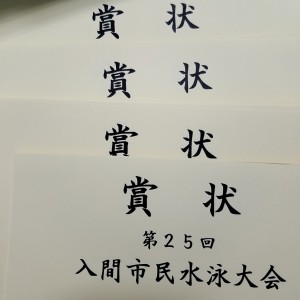 賞 状
賞 状
賞 状
賞 状
第25回
入間市民水泳大会